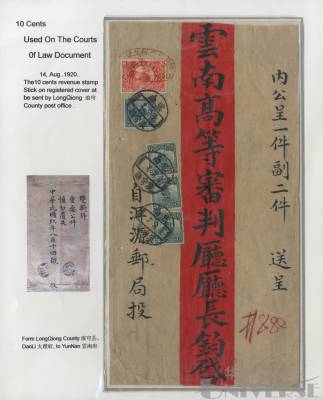 10 Cents
Used On The Courts
Of Law Document
14, Aug..1920..
The10 cents revenue stamp
Stick on registered cover at
be sent by LongQiong 浪穹
County post office .
內公呈一件副二件 送呈
雲南高等審判廳廳長鈞啟
自洱源郵局投
雙掛號
中華民國九年八月十四號
Form LongQiong County 浪穹县,
DaoLi 大理府, to YunNan 雲南府
UNIVERSE